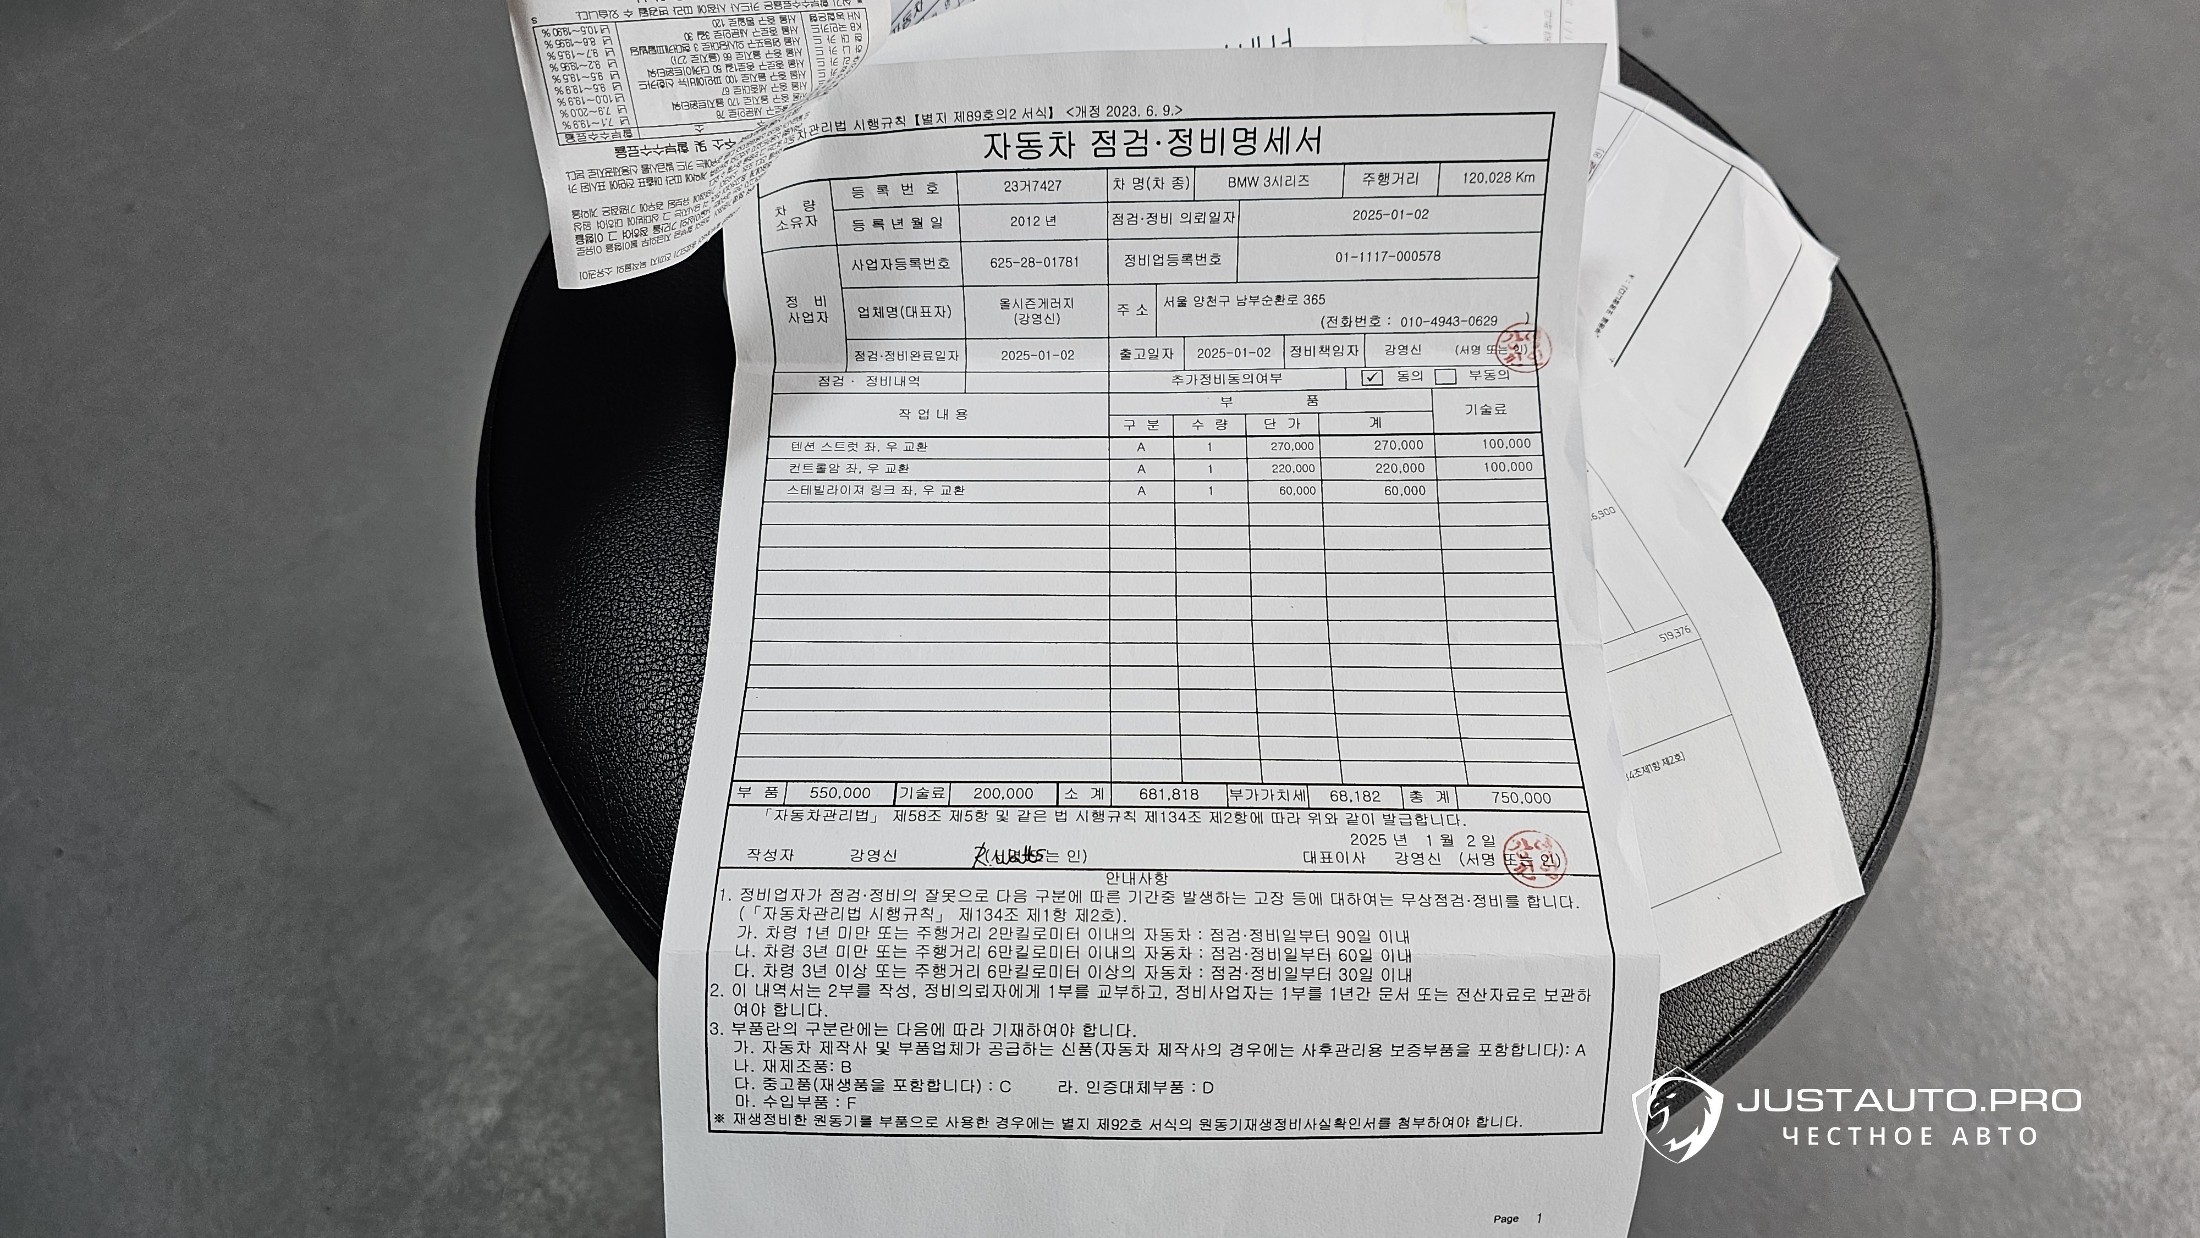 자동차관리법 시행규칙 [별지 제89호의2 서식] <개정 2023. 6. 9.>
자동차 점검·정비명세서
차 량 소유자
등 록 번 호 23거7427 차 명(차 종) BMW 3시리즈 주행거리 120,028 Km
등 록 년 월 일 2012 년 점검·정비 의뢰일자 2025-01-02
정 비 사업자
사업자등록번호 625-28-01781 정비업등록번호 01-1117-000578
업체명(대표자) 올시즌게러지 (강영신) 주 소 서울 양천구 남부순환로 365
(전화번호 : 010-4943-0629 )
점검·정비완료일자 2025-01-02 출고일자 2025-01-02 정비책임자 강영신 (서명 또는 인)
점검 · 정비내역 추가정비동의여부 ✓ 동의 부동의
작 업 내 용 부 품 기술료
구 분 수 량 단 가 계
텐션 스트럿 좌, 우 교환 A 1 270,000 270,000 100,000
컨트롤암 좌, 우 교환 A 1 220,000 220,000 100,000
스테빌라이져 링크 좌, 우 교환 A 1 60,000 60,000
부 품 550,000 기술료 200,000 소 계 681,818 부가가치세 68,182 총 계 750,000
「자동차관리법」 제58조 제5항 및 같은 법 시행규칙 제134조 제2항에 따라 위와 같이 발급합니다.
2025 년 1 월 2 일
작성자 강영신 는 인) 대표이사 강영신 (서명 또는 인)
안내사항
1. 정비업자가 점검·정비의 잘못으로 다음 구분에 따른 기간중 발생하는 고장 등에 대하여는 무상점검·정비를 합니다.
(「자동차관리법 시행규칙」 제134조 제1항 제2호).
가. 차령 1년 미만 또는 주행거리 2만킬로미터 이내의 자동차 : 점검·정비일부터 90일 이내
나. 차령 3년 미만 또는 주행거리 6만킬로미터 이내의 자동차 : 점검·정비일부터 60일 이내
다. 차령 3년 이상 또는 주행거리 6만킬로미터 이상의 자동차 : 점검·정비일부터 30일 이내
2. 이 내역서는 2부를 작성, 정비의뢰자에게 1부를 교부하고, 정비사업자는 1부를 1년간 문서 또는 전산자료로 보관하
여야 합니다.
3. 부품란의 구분란에는 다음에 따라 기재하여야 합니다.
가. 자동차 제작사 및 부품업체가 공급하는 신품(자동차 제작사의 경우에는 사후관리용 보증부품을 포함합니다): A
나. 재제조품: B
다. 중고품(재생품을 포함합니다) : C 라. 인증대체부품 : D
마. 수입부품 : F
※ 재생정비한 원동기를 부품으로 사용한 경우에는 별지 제92호 서식의 원동기재생정비사실확인서를 첨부하여야 합니다.
Page 1
519,376
JUSTAUTO.PRO
ЧЕСТНОЕ АВТО